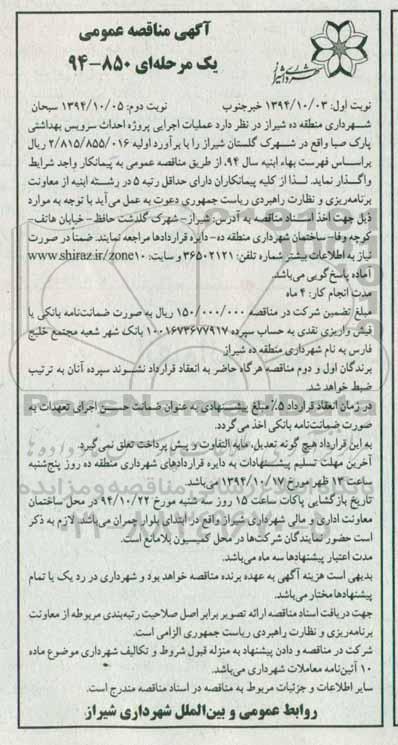 آگهی مناقصه عمومی
یک مرحله‌ای ۸۵۰-۹۴
شهرداری شیراز
نوبت اول: ۱۳۹۴/۱۰/۰۳ خبرجنوب نوبت دوم: ۱۳۹۴/۱۰/۰۵ سبحان
شهرداری منطقه ده شیراز در نظر دارد عملیات اجرایی پروژه احداث سرویس بهداشتی
پارک صبا واقع در شهرک گلستان شیراز را با برآورد اولیه ۲/۸۱۵/۸۵۵/۰۱۶ ریال
براساس فهرست بهاء ابنیه سال ۹۴، از طریق مناقصه عمومی به پیمانکار واجد شرایط
واگذار نماید. لذا از کلیه پیمانکاران دارای حداقل رتبه ۵ در رشته ابنیه از معاونت
برنامه‌ریزی و نظارت راهبردی ریاست جمهوری دعوت به عمل می‌آید با توجه به موارد
ذیل جهت اخذ اسناد مناقصه به آدرس: شیراز- شهرک گلدشت حافظ- خیابان هاتف-
کوچه وفا- ساختمان شهرداری منطقه ده- دایره قراردادها مراجعه نمایند. ضمناً در صورت
نیاز به اطلاعات بیشتر شماره تلفن: ۳۶۵۰۲۱۲۱ و سایت: www.shiraz.ir/zone۱۰
آماده پاسخ‌گویی می‌باشد.
مدت انجام کار: ۴ ماه
مبلغ تضمین شرکت در مناقصه ۱۵۰/۰۰۰/۰۰۰ ریال به صورت ضمانت‌نامه بانکی یا
فیش واریزی نقدی به حساب سپرده ۱۰۰۱۶۷۳۶۷۷۹۱۷ بانک شهر شعبه مجتمع خلیج
فارس به نام شهرداری منطقه ده شیراز
برندگان اول و دوم مناقصه هرگاه حاضر به انعقاد قرارداد نشوند سپرده آنان به ترتیب
ضبط خواهد شد.
در زمان انعقاد قرارداد ۵٪ مبلغ پیشنهادی به عنوان ضمانت حسن اجرای تعهدات به
صورت ضمانت‌نامه بانکی اخذ می‌گردد.
به این قرارداد هیچ گونه تعدیل، مابه التفاوت و پیش پرداخت تعلق نمی‌گیرد.
آخرین مهلت تسلیم پیشنهادات به دایره قراردادهای شهرداری منطقه ده روز پنج‌شنبه
ساعت ۱۲ ظهر مورخ ۱۳۹۴/۱۰/۱۷ می‌باشد.
تاریخ بازگشایی پاکات ساعت ۱۵ روز سه شنبه مورخ ۹۴/۱۰/۲۲ در محل ساختمان
معاونت اداری و مالی شهرداری شیراز واقع در ابتدای بلوار چمران می‌باشد. لازم به ذکر
است حضور نمایندگان شرکت‌ها در محل کمیسیون بلامانع است.
مدت اعتبار پیشنهادها سه ماه می‌باشد.
بدیهی است هزینه آگهی به عهده برنده مناقصه خواهد بود و شهرداری در رد یک یا تمام
پیشنهادها مختار می‌باشد.
جهت دریافت اسناد مناقصه ارائه تصویر برابر اصل صلاحیت رتبه‌بندی مربوطه از معاونت
برنامه‌ریزی و نظارت راهبردی ریاست جمهوری الزامی است.
شرکت در مناقصه و دادن پیشنهاد به منزله قبول شروط و تکالیف شهرداری موضوع ماده
۱۰ آئین‌نامه معاملات شهرداری می‌باشد.
سایر اطلاعات و جزئیات مربوط به مناقصه در اسناد مناقصه مندرج است.
روابط عمومی و بین‌الملل شهرداری شیراز
ParsNamadData